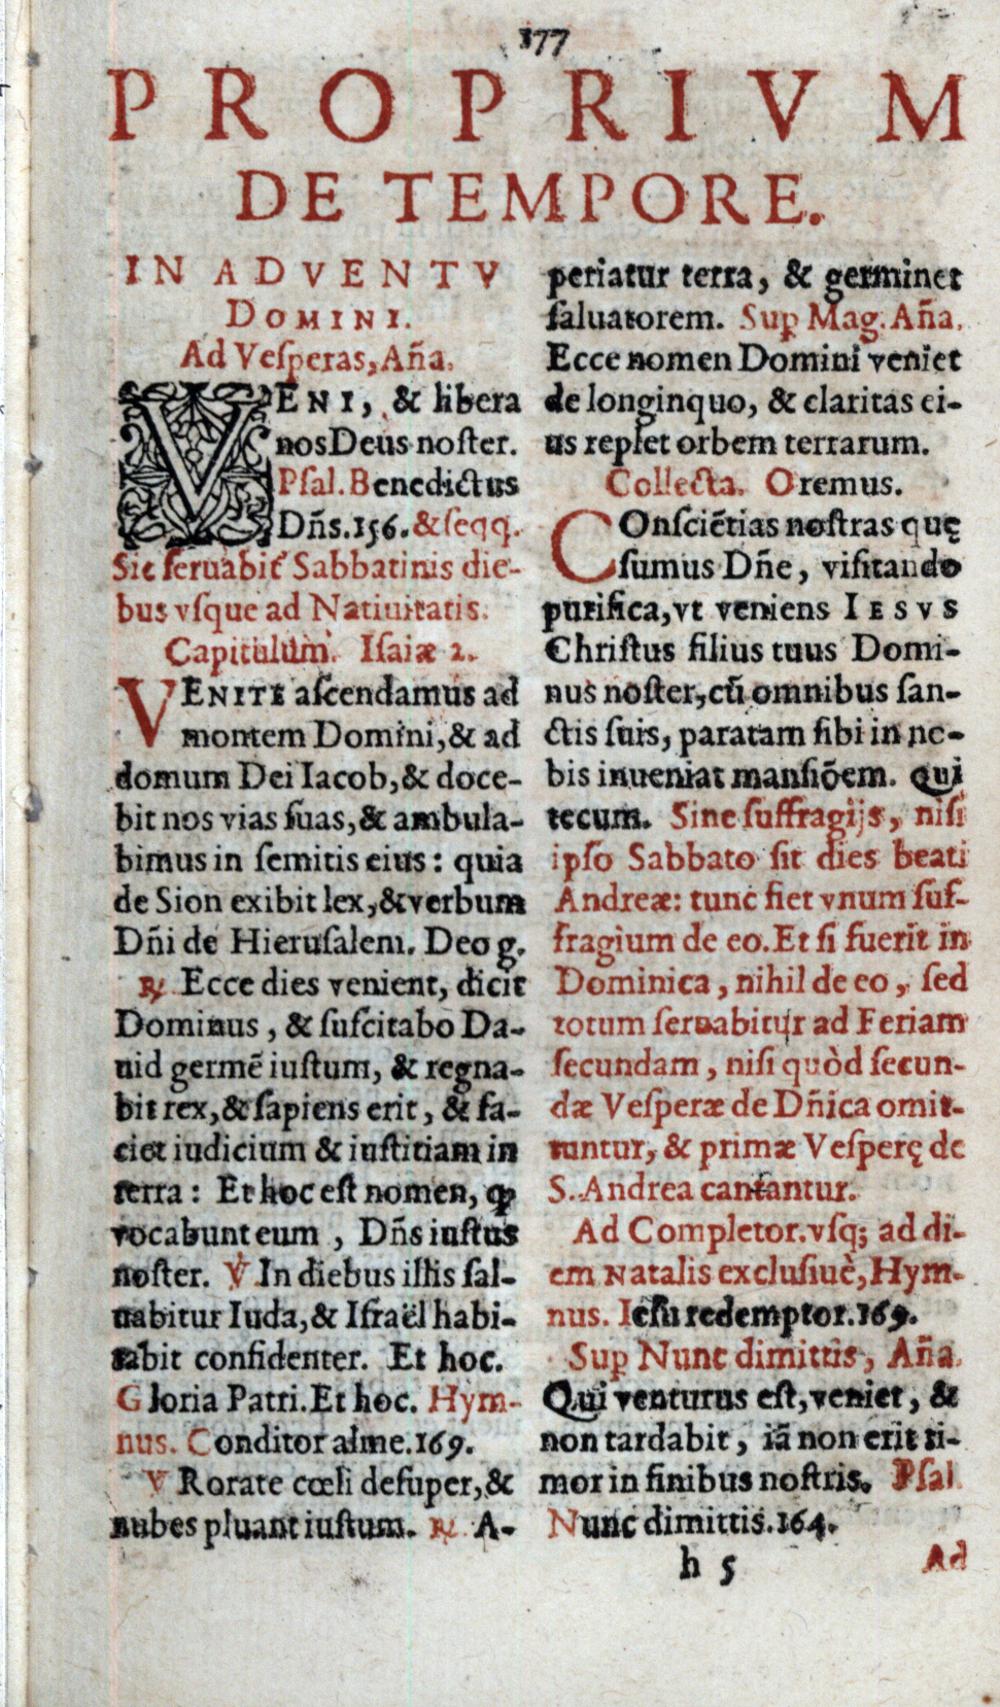 177
PROPRIVM
DE TEMPORE.
IN ADVENTV
DOMINI.
Ad Veſperas, Aña.
VENI, & libera
nos Deus noſter.
Pſal. Benedictus
Dñs. 156. & ſeqq.
Sic ſeruabit᷑ Sabbatinis die-
bus vſque ad Natiuitatis.
Capitulum. Iſaiæ 2.
VENITE aſcendamus ad
montem Domini, & ad
domum Dei Iacob, & doce-
bit nos vias ſuas, & ambula-
bimus in ſemitis eius : quia
de Sion exibit lex, & verbum
Dñi de Hieruſalem. Deo g.
℟ Ecce dies venient, dicit
Dominus, & ſuſcitabo Da-
uid germẽ iuſtum, & regna-
bit rex, & ſapiens erit, & fa-
ciet iudicium & iuſtitiam in
terra : Et hoc eſt nomen, ꝙ
vocabunt eum , Dñs iuſtus
noſter. ℣ In diebus illis ſal-
uabitur Iuda, & Iſraël habi-
tabit confidenter. Et hoc.
Gloria Patri. Et hoc. Hym-
nus. Conditor alme. 169.
V Rorate cœli deſuper, &
nubes pluant iuſtum. ℟ A-
periatur terra, & germinet
ſaluatorem. Sup̱ Mag. Aña.
Ecce nomen Domini veniet
de longinquo, & claritas ei-
us replet orbem terrarum.
Collecta. Oremus.
COnſciẽtias noſtras quę
ſumus Dñe, viſitando
purifica, vt veniens IESVS
Chriſtus filius tuus Domi-
nus noſter, cũ omnibus ſan-
ctis ſuis, paratam ſibi in no-
bis inueniat manſiõem. Qui
tecum. Sine ſuffragijs, niſi
ipſo Sabbato ſit dies beati
Andreæ: tunc fiet vnum ſuf-
fragium de eo. Et ſi fuerit in
Dominica, nihil de eo, ſed
totum ſeruabitur ad Feriam
ſecundam, niſi quòd ſecun-
dæ Veſperæ de Dñica omit-
tuntur, & primæ Veſperę de
S. Andrea cantantur.
Ad Completor. vſq; ad di-
em Natalis excluſiuè, Hym-
nus. Ieſu redemptor. 169.
Sup̱ Nunc dimittis, Aña.
Qui venturus eſt, veniet, &
non tardabit, iã non erit ti-
mor in finibus noſtris. Pſal.
Nunc dimittis. 164.
h 5 Ad